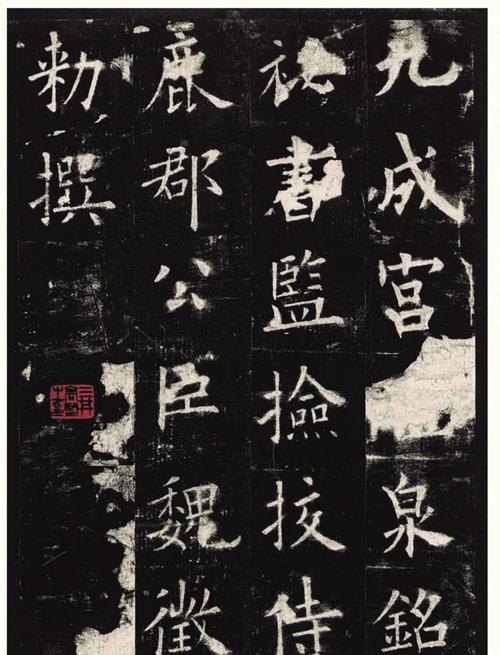 九成宮泉銘
祕書監撿挍侍
鹿郡公臣魏徵
勑撰